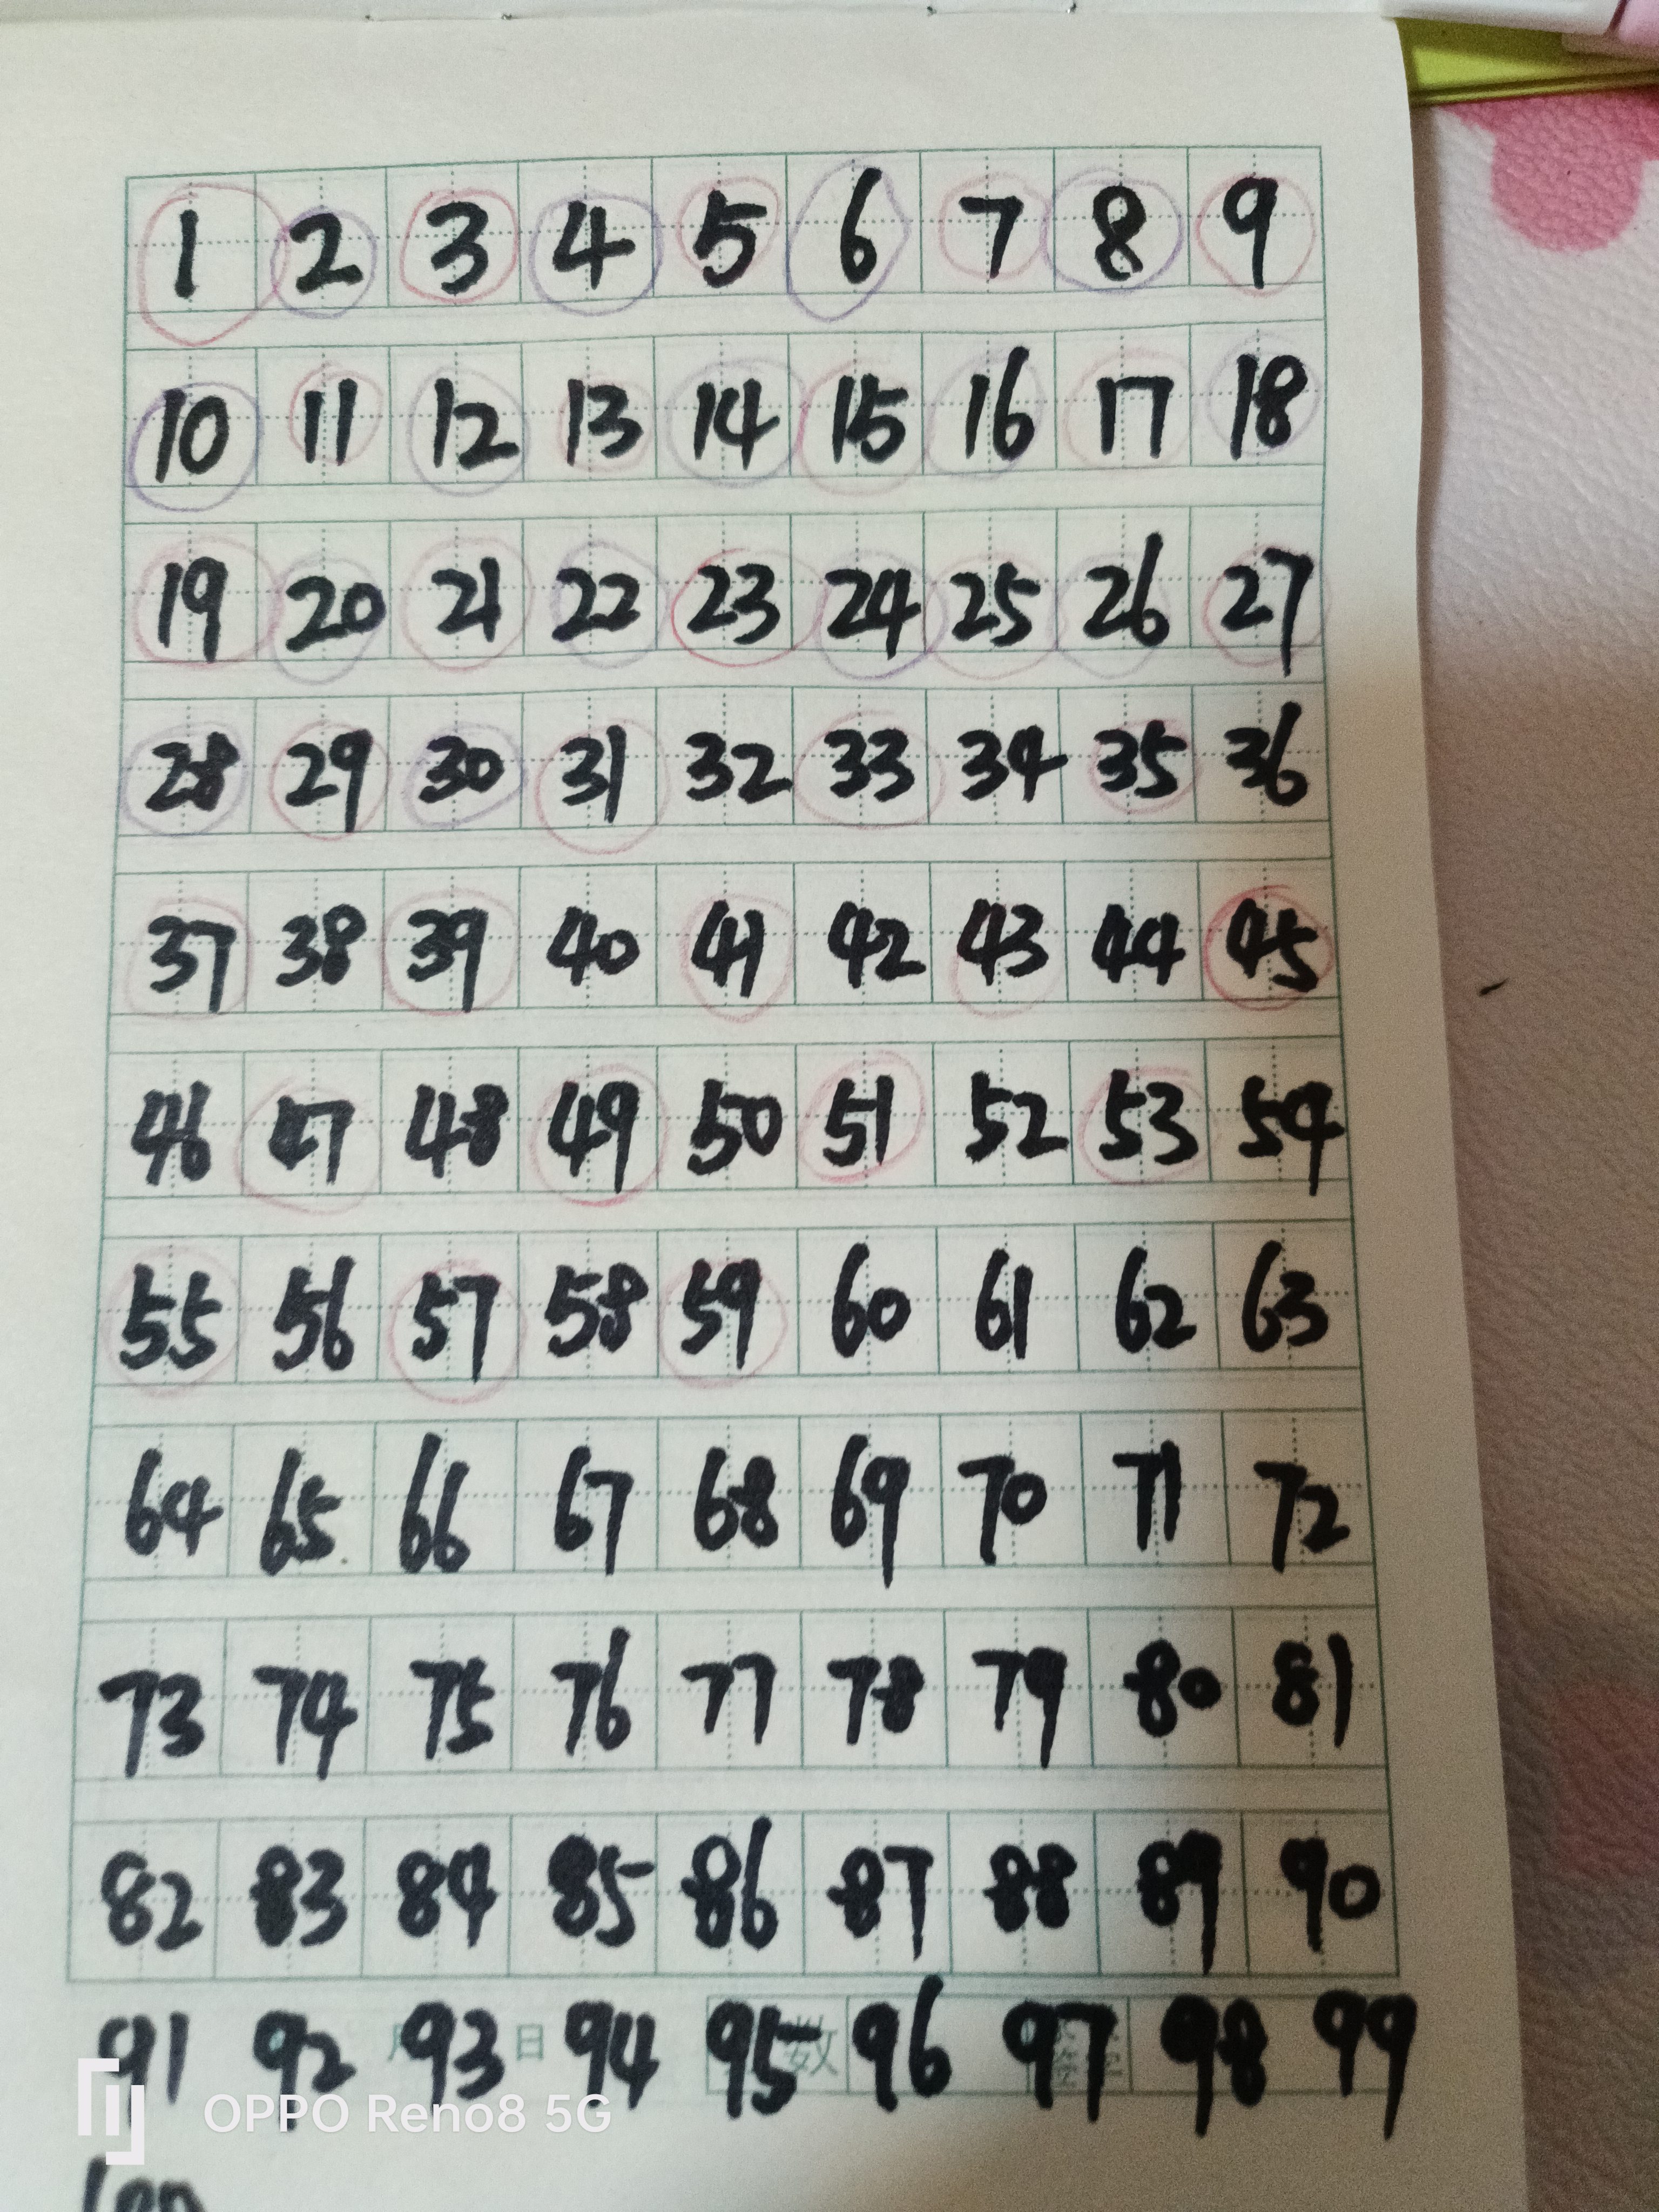 1 2 3 4 5 6 7 8 9
10 11 12 13 14 15 16 17 18
19 20 21 22 23 24 25 26 27
28 29 30 31 32 33 34 35 36
37 38 39 40 41 42 43 44 45
46 47 48 49 50 51 52 53 54
55 56 57 58 59 60 61 62 63
64 65 66 67 68 69 70 71 72
73 74 75 76 77 78 79 80 81
82 83 84 85 86 87 88 89 90
91 92 93 94 95 96 97 98 99
月 日 数
OPPO Reno8 5G
100